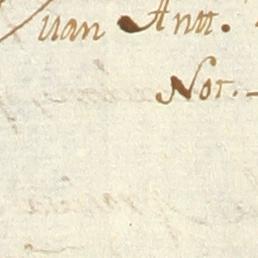 Juan Antt.
Not.